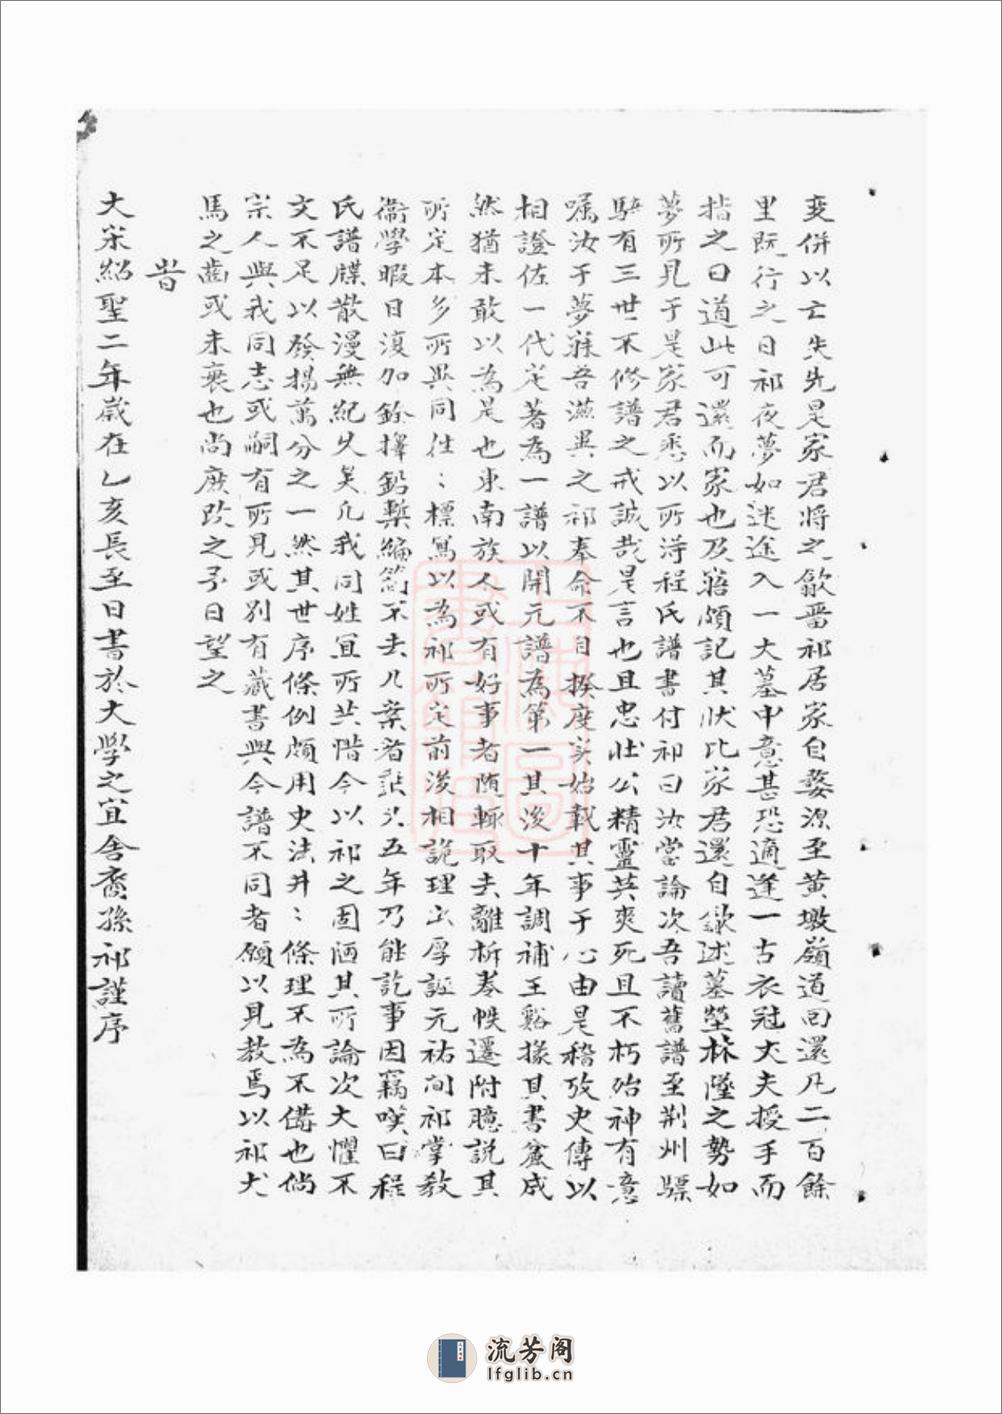 変併以亡失先是家君將之歙畱祁居家自婺源至黄墩嶺道回還凡二百餘
里既行之日祁夜夢如迷途入一大墓中意甚恐適逢一古衣冠大夫授手而
指之曰道此可還而家也及寤頗記其狀比家君還自歙述墓塋林隧之勢如
夢所見于是家君悉以所得程氏譜書付祁曰汝當論次吾讀舊譜至荆州驃
騎有三世不修譜之戒誠哉是言也且忠壯公精靈英爽死且不朽殆神有意
嘱汝于夢寐吾滋異之祁奉命不自揆度実始載其事于心由是稽攷史傳以
相證佐一代定著為一譜以開元譜為第一其後十年調補王谿掾其書龛成
然猶未敢以為是也東南族人或有好事者随輙取去離析卷帙遷附臆説其
所定本多所異同徃〻標寫以為祁所定前後相詭理出厚誣元祐间祁掌教
衞學暇日復加銓擇鉛槧編劄不去几案者歨五年乃能訖事因竊嘆曰程
氏譜牒散漫無紀乆矣凡我同姓冝所共惜今以祁之固陋其所論次大懼不
文不足以發揚萬分之一然其世序條例頗用史法井〻條理不為不備也倘
宗人與我同志或嗣有所見或别有藏書與今譜不同者願以見教焉以祁犬
馬之齒或未衰也尚庶改之予日望之
旹
大宋紹聖二年歲在乙亥長至日書於大學之冝舍裔孫祁謹序
流芳阁
lfglib.cn